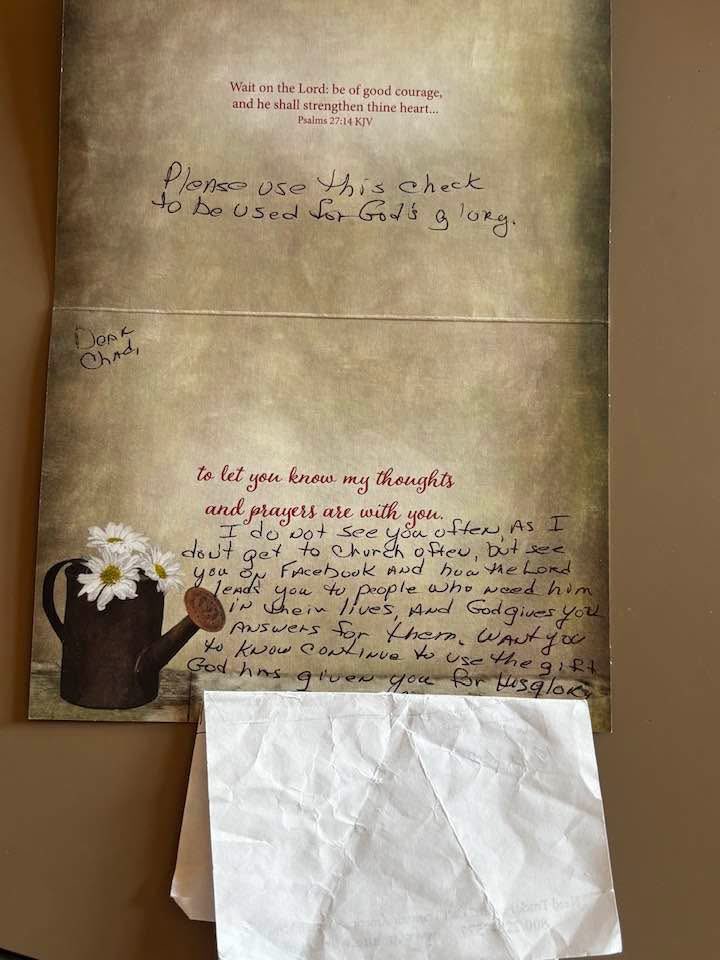 Wait on the Lord: be of good courage,
and he shall strengthen thine heart...
Psalms 27:14 KJV
Please use this check
to be used for God's glory.
Dear
Chad,
to let you know my thoughts
and prayers are with you.
I do not see you often, As I
don't get to church often, but see
you on FAcebook And how the Lord
leads you to people who need him
in their lives, And God gives you
Answers for them. Want you
to know continue to use the gift
God has given you for His glory